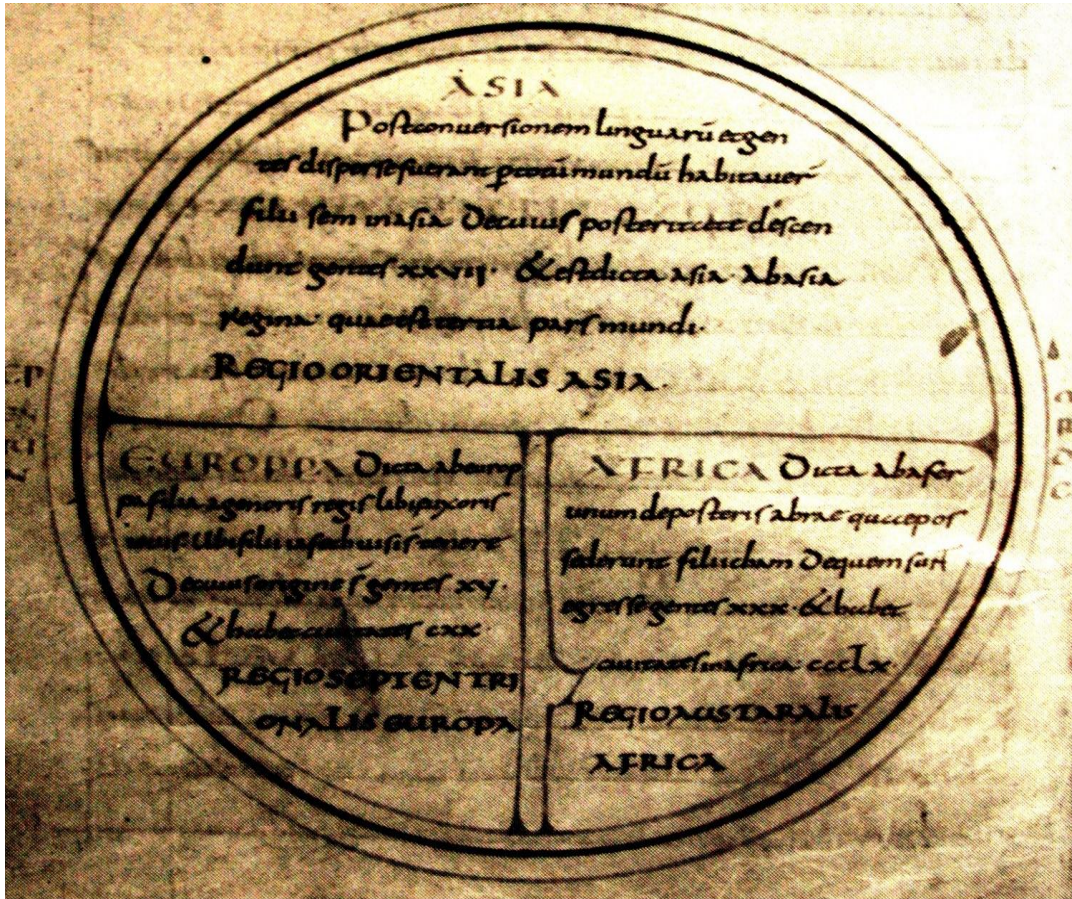 ASIA
Postconversionem linguarū etgen
tes disperse fuerant ꝑ totū mundū habitaver̄
filii sem inasia Decuius posteritate descen
dunt gentes xxvii · & est dicta asia · ab asia
regina · quae est tertia pars mundi ·
REGIO ORIENTALIS ASIA ·
EUROPPA Dicta ab europ
pa filia agenoris regis libiae uxoris
iovis Ubi filii iafeth
Decuius origine s̄ gentes xv ·
& habet civitates cxx
REGIO SEPTENTRI
ONALIS EUROPA
AFRICA Dicta ab afer
unum deposteris abrae quae pos
sederunt filii cham Dequem sun
egresse gentes xxx · & habet
civitates inafrica ccclx ·
REGIO AUSTARALIS
AFRICA